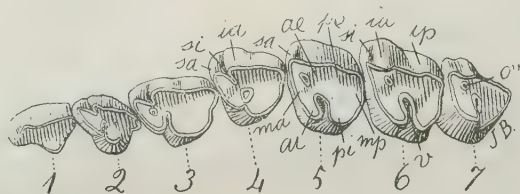 si ia sa ae pe si ia ip
sa o'''
ma ai pi mp v J.B.
1 2 3 4 5 6 7